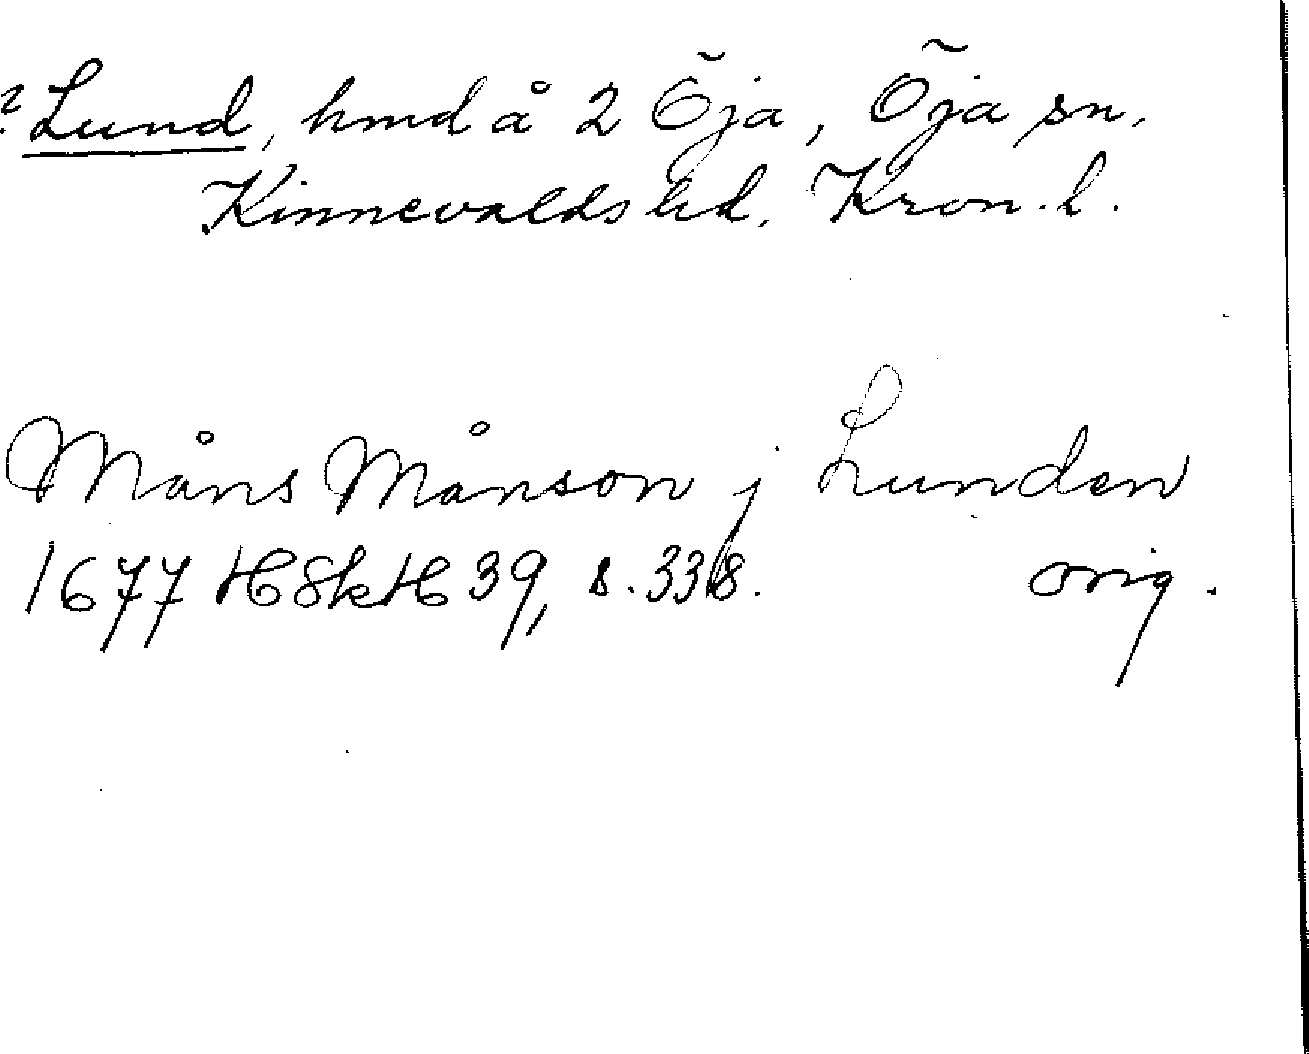 ? Lund, hmd å 2 Öja, Öja sn,
Kinnevalds hd, Kron. l.
Måns Månson j Lunden
1677 HSkH 39, s. 338. orig.